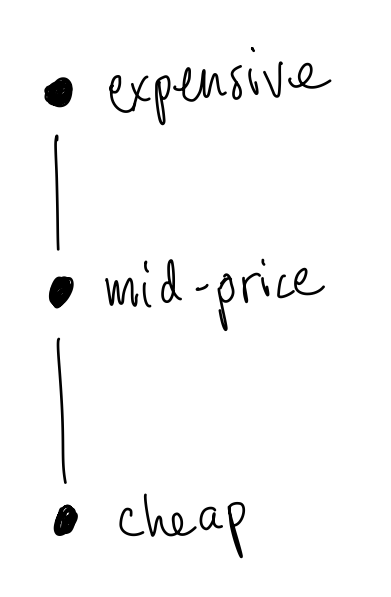 expensive
mid-price
cheap